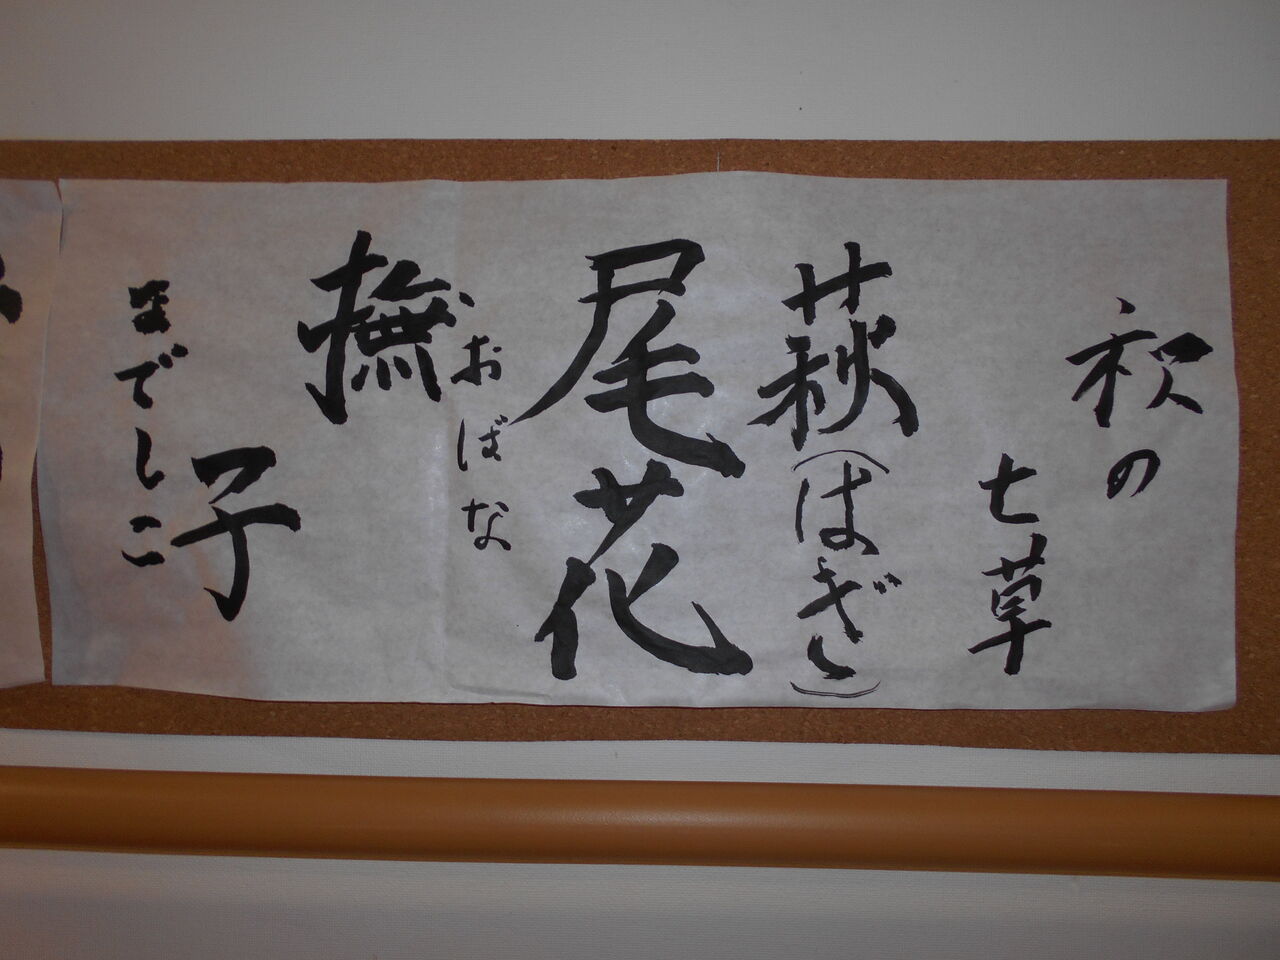 秋の
七草
萩(はぎ)
尾花
おばな
撫子
までしこ